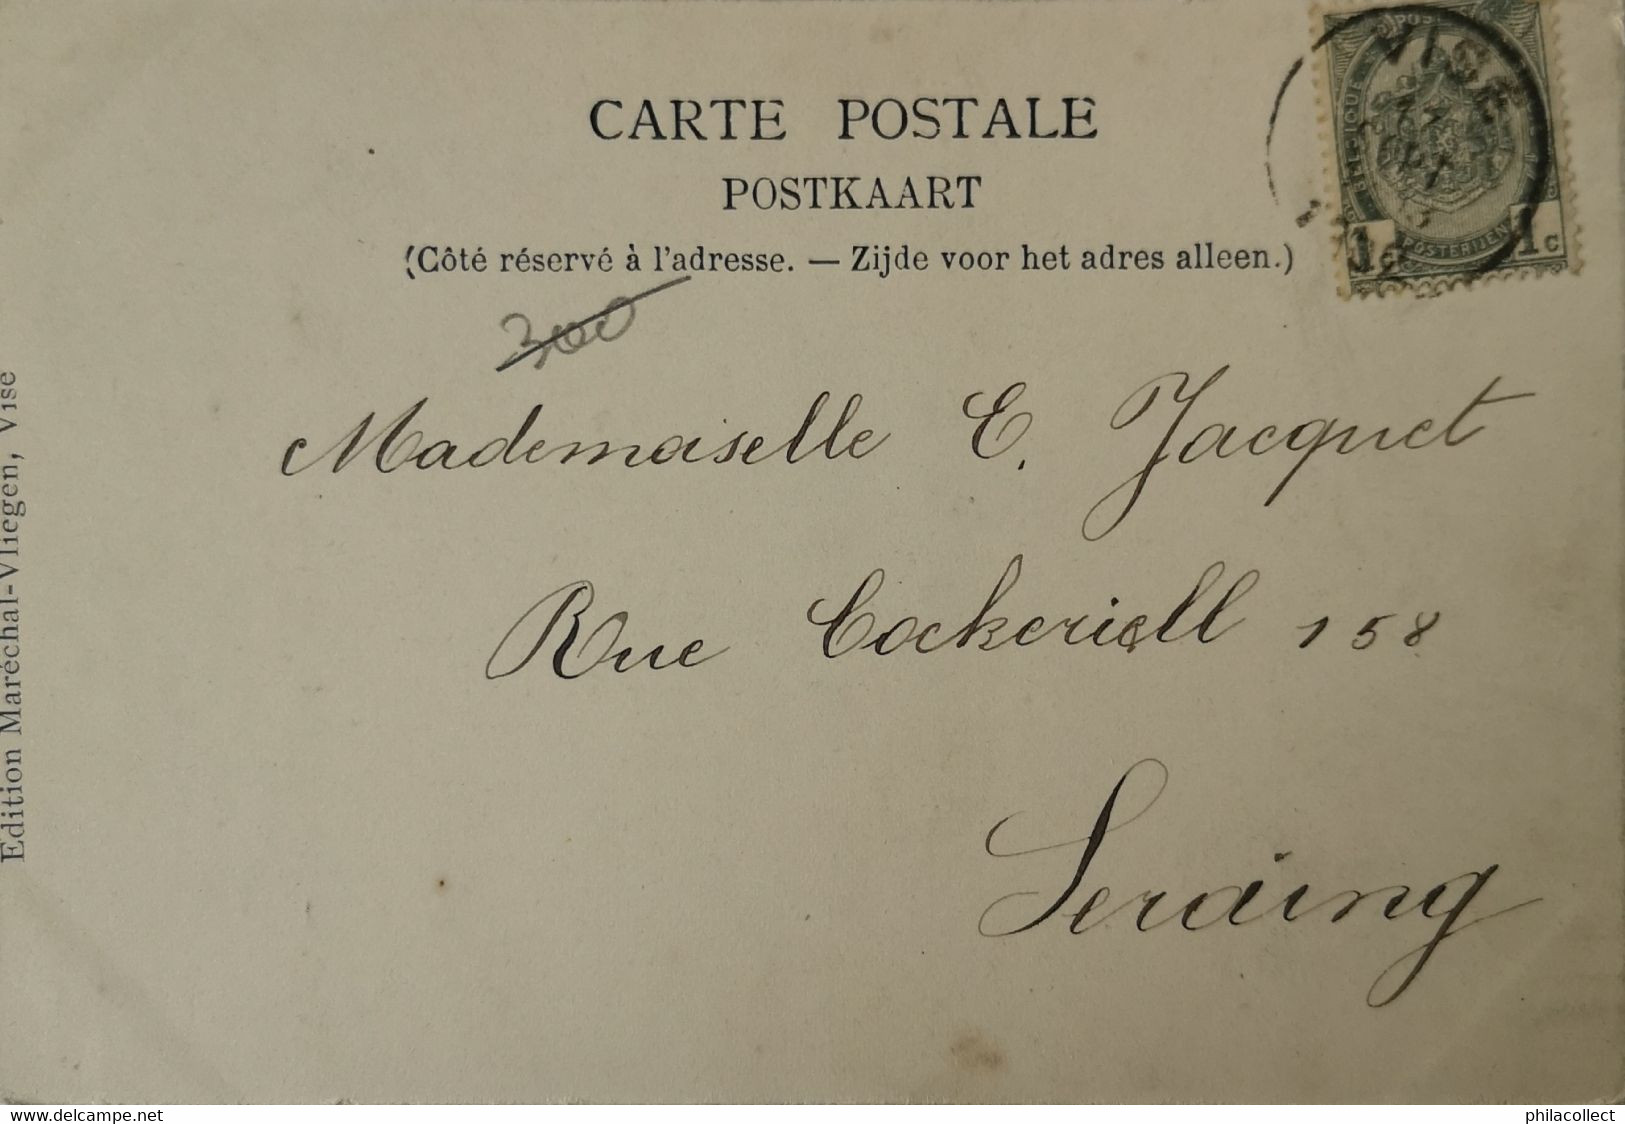 CARTE POSTALE
POSTKAART
(Côté réservé à l'adresse. — Zijde voor het adres alleen.)
300
Mademoiselle E. Jacquet
Rue Cockeriell 158
Seraing
Edition Maréchal-Vliegen, Visé
VISÉ
BELGIQUE
POSTERIJEN
1c 1c
www.delcampe.net
philacollect